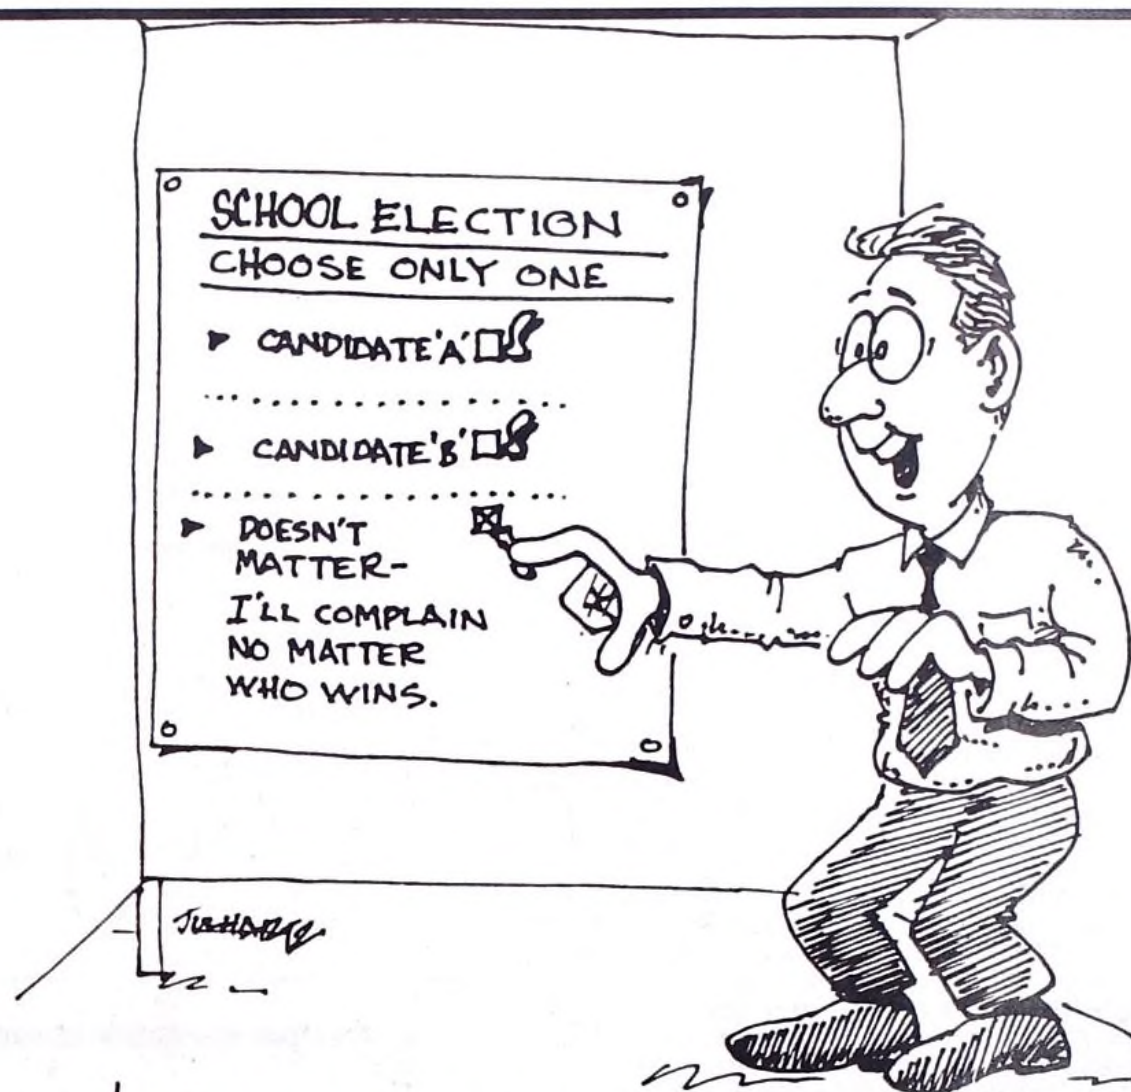 SCHOOL ELECTION
CHOOSE ONLY ONE
CANDIDATE 'A'
CANDIDATE 'B'
DOESN'T
MATTER-
I'LL COMPLAIN
NO MATTER
WHO WINS.